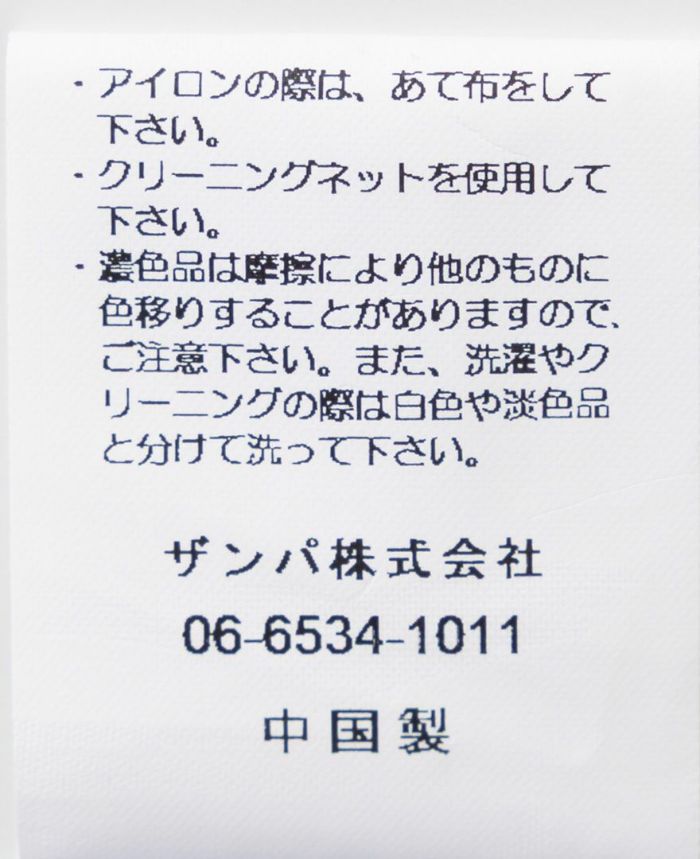 ・アイロンの際は、あて布をして
下さい。
・クリーニングネットを使用して
下さい。
・濃色品は摩擦により他のものに
色移りすることがありますので、
ご注意下さい。また、洗濯やク
リーニングの際は白色や淡色品
と分けて洗って下さい。
ザンパ株式会社
06-6534-1011
中国製